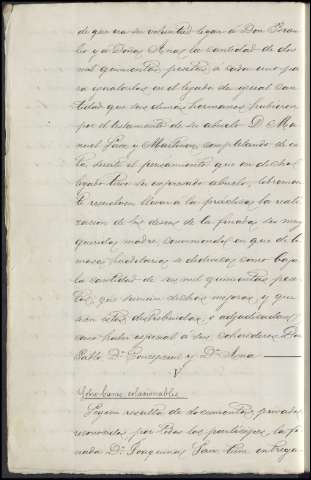 de que era su voluntad legar á Don
blo y á Doña Ana, la cantidad de dos
mil quinientas pesetas, á cada uno pa
ra igualarlos en el legado de igual can
tidad que sus demas hermanos hubieron
por el testamento de su abuelo D. Ma
nuel y Martinez, completando de es
ta suerte el pensamiento que en dicho
legado tuvo su expresado abuelo,
te resuelven llevar a la práctica la reali
zacion de los deseos de la finada su muy
querida madre, conviniendo en que de la
masa hereditaria se deduzca como baja
la cantidad de mil quinientas pese
tas, que suman dichas mejoras, y que
sean estas distribuidas, o adjudicadas
como haber especial á sus coherederos Don
Pablo D.ª Concepcion y D.ª Ana
V
Sobre bienes colacionables
Segun resulta de documentos privados
reconocidos por todos los participes, la fi
nada D.ª Joaquina tiene entrega